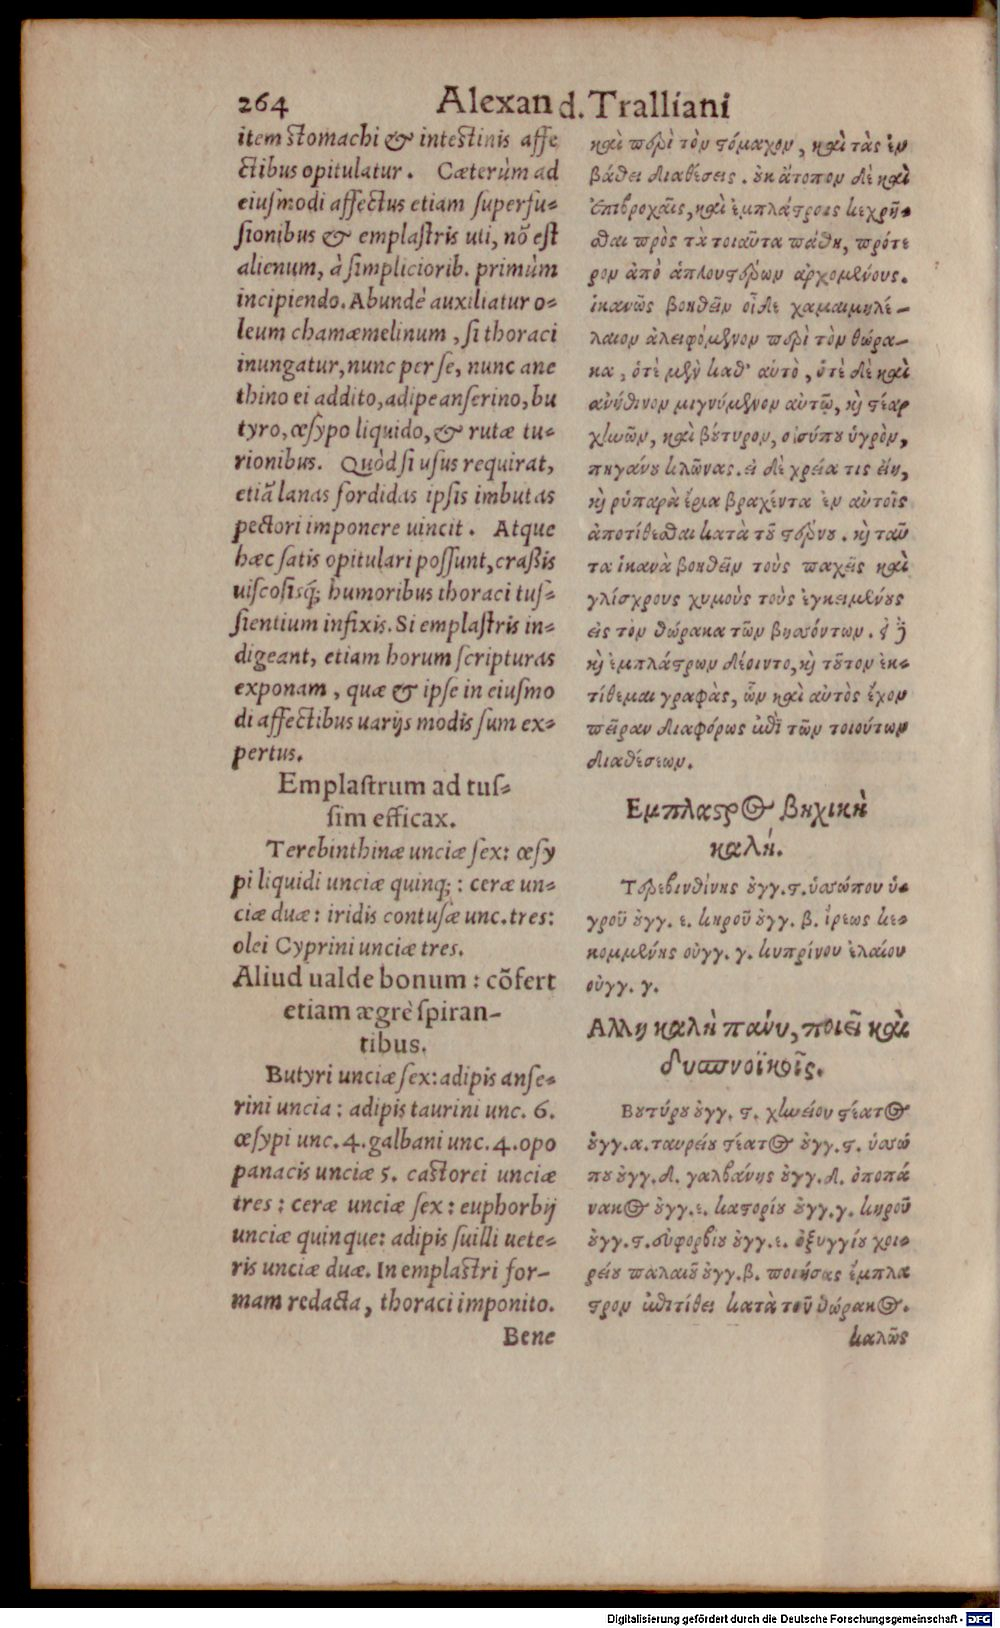 264 Alexand. Tralliani
item stomachi & intestinis affe
ctibus opitulatur. Cæterùm ad
eiusmodi affectus etiam superfu-
sionibus & emplastris uti, nõ est
alienum, à simpliciorib. primùm
incipiendo. Abundè auxiliatur o-
leum chamæmelinum, si thoraci
inungatur, nunc per se, nunc ane
thino ei addito, adipe anserino, bu
tyro, œsypo liquido, & rutæ tu-
rionibus. Quòd si usus requirat,
etiã lanas sordidas ipsis imbutas
pectori imponere uincit. Atque
hæc satis opitulari possunt, crassis
uiscosisq́; humoribus thoraci tus-
sientium infixis. Si emplastris in-
digeant, etiam horum scripturas
exponam, quæ & ipse in eiusmo
di affectibus uarijs modis sum ex-
pertus.
Emplastrum ad tus-
sim efficax.
Terebinthinæ unciæ sex: œsy
pi liquidi unciæ quinq;: ceræ un-
ciæ duæ: iridis contusæ unc. tres:
olei Cyprini unciæ tres.
Aliud ualde bonum: cõfert
etiam ægrè spiran-
tibus.
Butyri unciæ sex: adipis anse-
rini uncia: adipis taurini unc. 6.
œsypi unc. 4. galbani unc. 4. opo
panacis unciæ 5. castorei unciæ
tres: ceræ unciæ sex: euphorbij
unciæ quinque: adipis suilli uete-
ris unciæ duæ. In emplastri for-
mam redacta, thoraci imponito.
Bene
καὶ περὶ τὸν στόμαχον, καὶ τὰς ἐν
βάθει διαθέσεις. οὐκ ἄτοπον δὲ καὶ
ἐπιβροχαῖς, καὶ ἐμπλάστροις κεχρῆ-
σθαι πρὸς τὰ τοιαῦτα πάθη, πρότε
ρον ἀπὸ ἁπλουστέρων ἀρχομένους.
ἱκανῶς βοηθεῖν οἶδε χαμαιμηλέ-
λαιον ἀλειφόμενον περὶ τὸν θώρα-
κα, ὁτὲ μὲν καθ' αὑτὸ, ὁτὲ δὲ καὶ
ἀνήθινον μιγνύμενον αὐτῷ, καὶ στέαρ
χηνῶν, καὶ βούτυρον, οἰσύπου ὑγρὸν,
πηγάνου κλῶνας. εἰ δὲ χρεία τις εἴη,
καὶ ῥυπαρὰ ἔρια βραχέντα ἐν αὐτοῖς
ἀποτίθεσθαι κατὰ τοῦ στέρνου. καὶ ταῦ
τα ἱκανὰ βοηθεῖν τοὺς παχεῖς καὶ
γλίσχρους χυμοὺς τοὺς ἐγκειμένους
εἰς τὸν θώρακα τῶν βησσόντων. εἰ δὲ
καὶ ἐμπλάστρων δέοιντο, καὶ τούτον ἐκ-
τίθεμαι γραφὰς, ὧν καὶ αὐτὸς ἔχον
πεῖραν διαφόρως ἐπὶ τῶν τοιούτων
διαθέσεων.
Εμπλαστρος βηχικὴ
καλή.
Τερεβινθίνης οὐγγ. ϛ. ὑσσώπου ὑ-
γροῦ οὐγγ. ε. κηροῦ οὐγγ. β. ἴρεως κε-
κομμένης οὐγγ. γ. κυπρίνου ἐλαίου
οὐγγ. γ.
Αλλη καλὴ πάνυ, ποιεῖ καὶ
δυσπνοϊκοῖς.
Βουτύρου οὐγγ. ϛ. χηνείου στέατος
οὐγγ. α. ταυρείου στέατος οὐγγ. ϛ. ὑσσώ
που οὐγγ. δ. γαλβάνης οὐγγ. δ. ὀποπά
νακος οὐγγ. ε. καστορίου οὐγγ. γ. κηροῦ
οὐγγ. ϛ. εὐφορβίου οὐγγ. ε. ὀξυγγίου χοι-
ρείου παλαιοῦ οὐγγ. β. ποιήσας ἔμπλα
στρον ἐπιτίθει κατὰ τοῦ θώρακος.
καλῶς
Digitalisierung gefördert durch die Deutsche Forschungsgemeinschaft - DFG